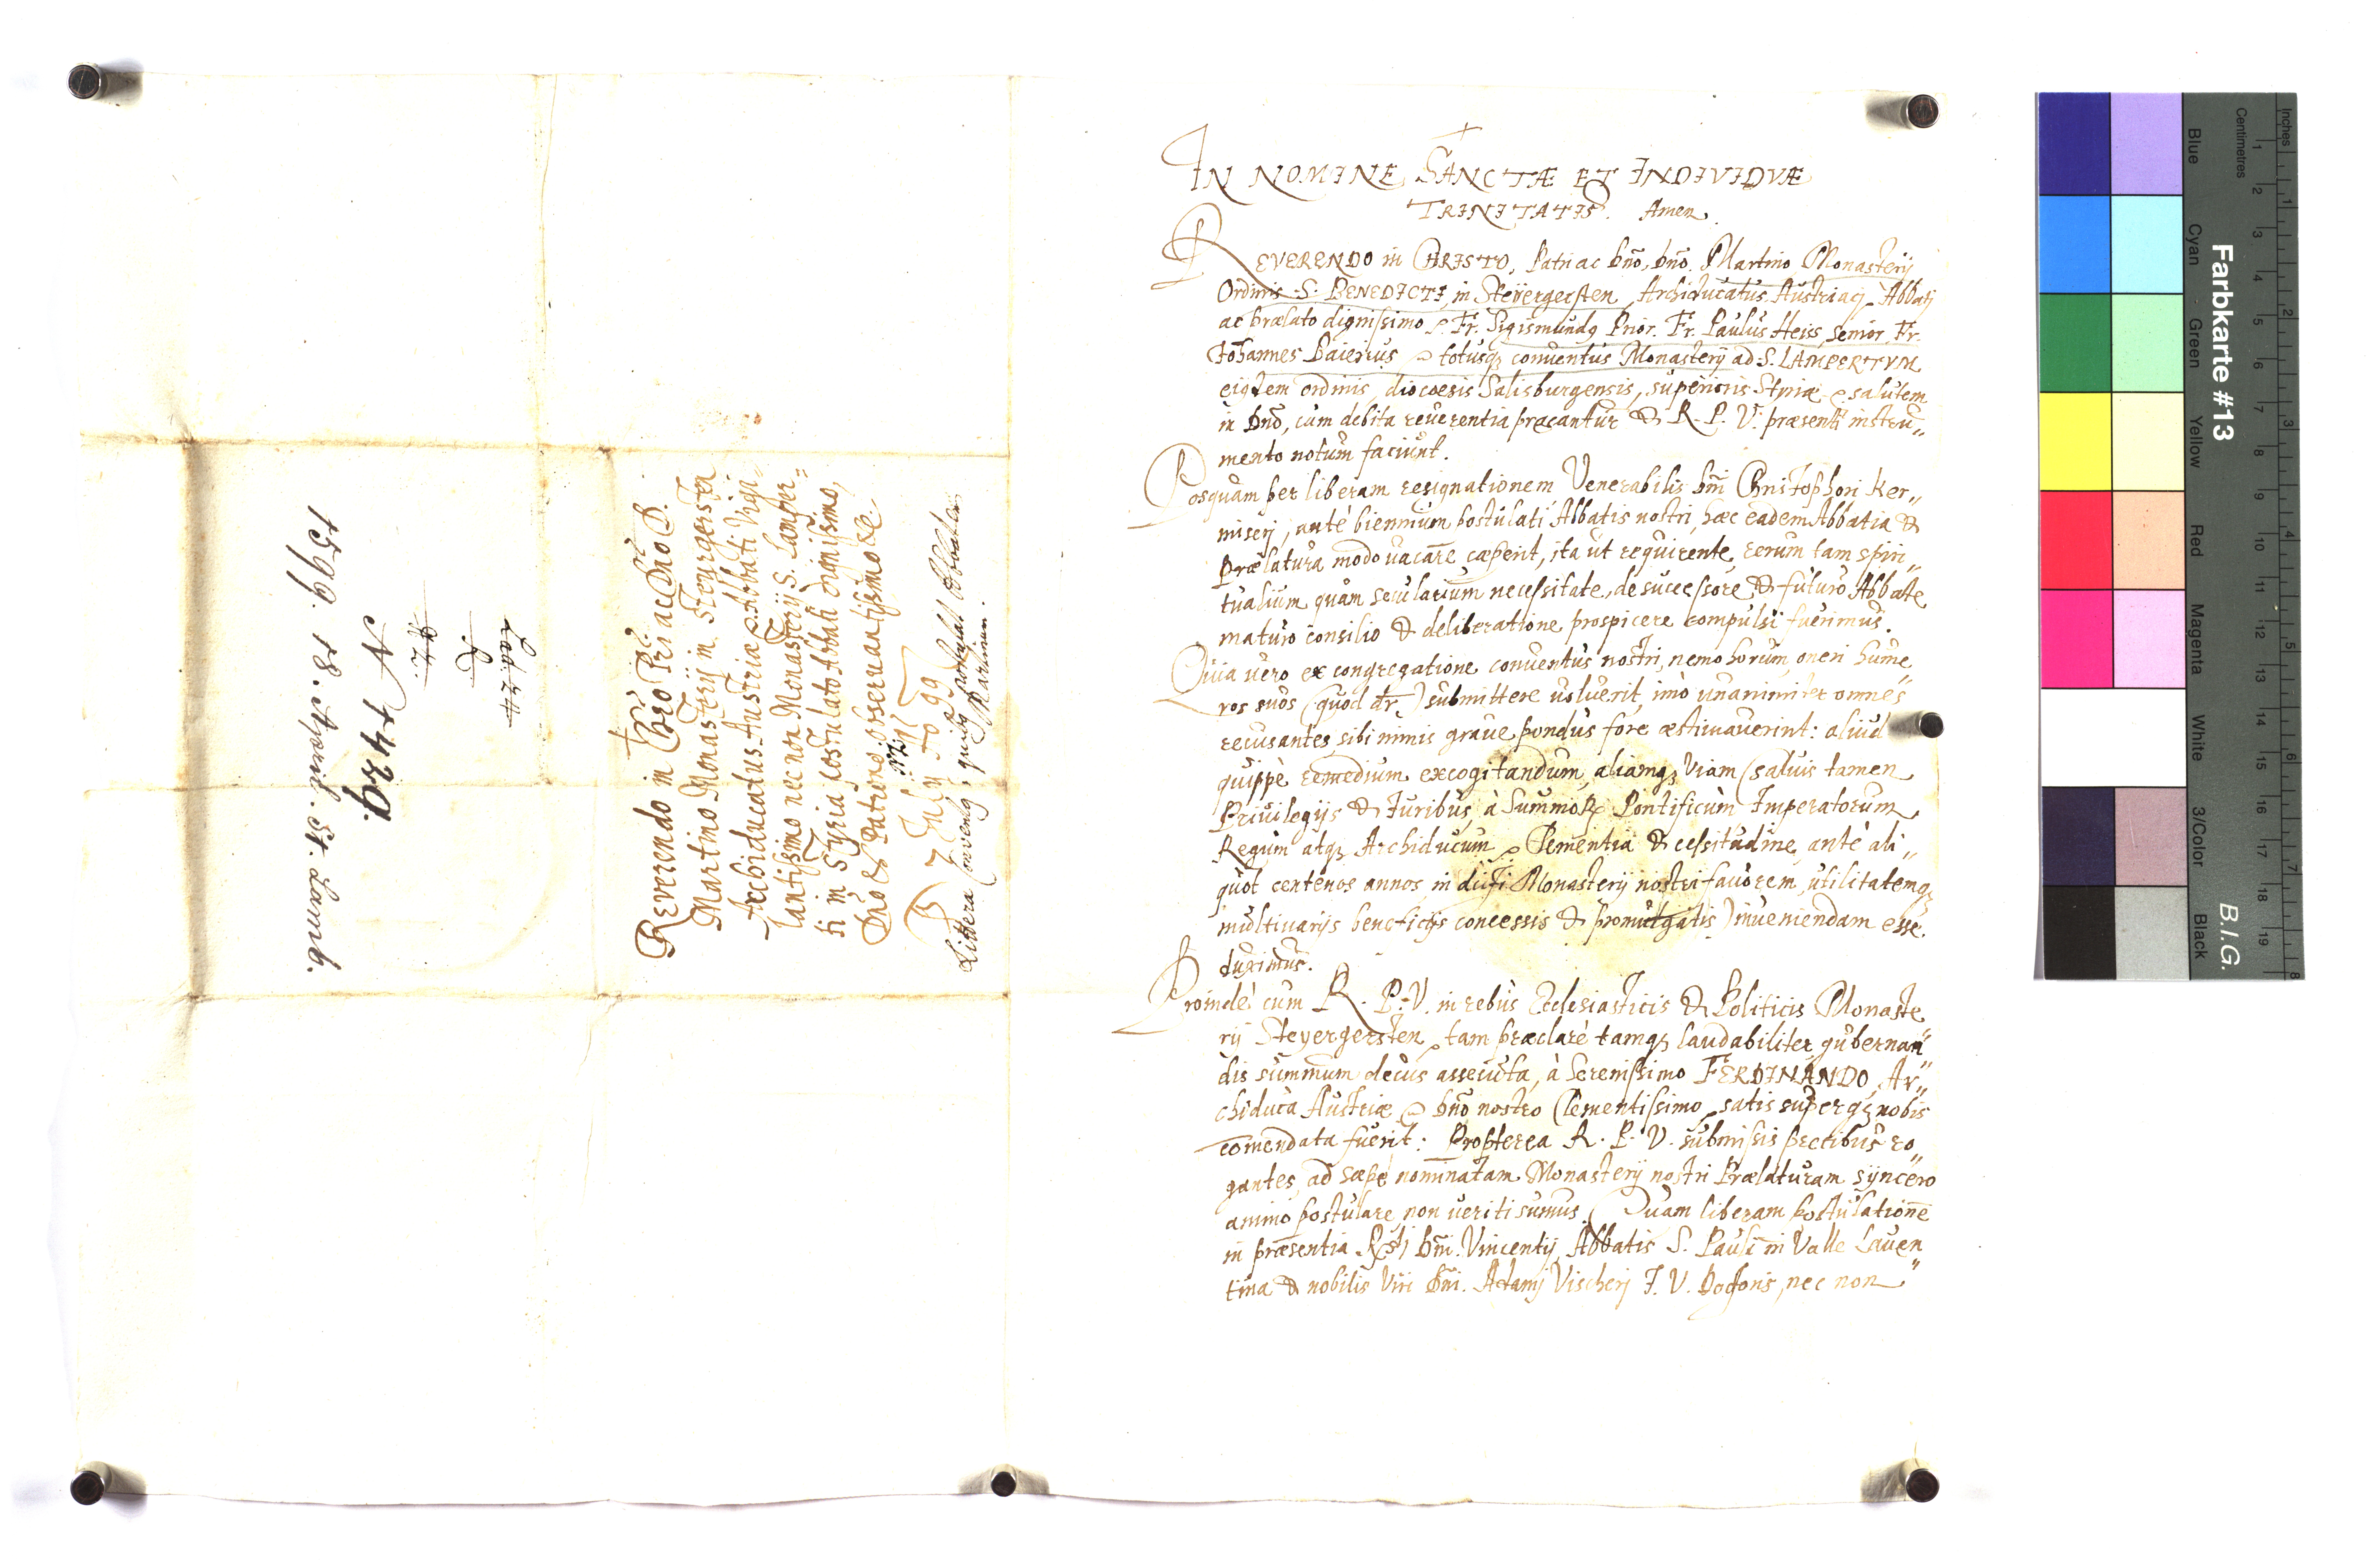 IN NOMINE SANCTÆ ET INDIVIDVÆ
TRINITATIS. Amen.
REVERENDO in CHRISTO, Patri ac Dño, Dño. Martino Monasterij
Ordinis S: BENEDICTI, in Steÿergersten, Archiducatus Austriacj Abbatj
ac Prælato dignissimo Fr. Sigismundꝰ Prior. Fr. Paulus Heiss, Senior, Fr.
Johannes Baierus totusqꝫ conuentus Monasterij ad S. LAMPERTVM
eiꝰdem ordinis, diocoesis Salisburgensis, superioris Styriæ salutem
in Dño, cum debita reuerentia præcantur & R. P. V. præsenti instru„
mento notum faciunt.
Posquam per liberam resignationem Venerabilis Dni Christophori Ker„
miserj, antè biennium postulati Abbatis nostri, hæc eadem Abbatia &
Prælatura modo uacare cæperit, ita ut requirente, rerum tam spiri„
tualium quàm secularium necessitate, de successore & futuro Abbate
maturo consilio & deliberatione prospicere compulsi fuerimus.
Quia uero ex congregatione conuentus nostri, nemo horum oneri hume„
ros suos (quod dr.) submittere uoluerit, imò unanimiter omnes
recusantes sibi nimis graue pondus fore æstimauerint: aliud
quippè remedium excogitandum, aliamqꝫ Viam (saluis tamen
Priuilegijs & Juribus à Summoꝝ Pontificùm Imperatorum
Regùm atqꝫ Archiducum Clementia & celsitudine, antè ali„
quot centenos annos in dicti Monasterij nostri fauorem, utilitatemqꝫ
multiuarijs beneficijs concessis & promulgatis) inueniendam esse
duximus.
Proindè cum R. P. V. in rebus Ecclesiasticis & Politicis Monaste„
rij Steyergersten, tam præclarè tamqꝫ laudabiliter gubernan„
dis summum decus assecuta, à Serenissimo FERDINANDO, Ar„
chiduca Austriæ Dño nostro Clementissimo, satis superqꝫ nobis
comendata fuerit: Propterea R. P. V. submissis precibus ro„
gantes, ad sæpe nominatam Monasterij nostri Prælaturam syncero
animo postulare non ueriti sumus. Quam liberam postulationē
in præsentia Rdi Dni. Vincentij Abbatis S. Pauli in Valle Lauen„
tina & nobilis Viri Dni. Adamj Vischerj J. V. Doctoris, nec non
Reverendo in Chro Pri ac Dno D.
Martino Monasterij in Steyrgersten
Archiducatus Austriæ Abbati Vigi„
lantissimo nec non Monasterij S. Lamper„
ti in Styria postulato Abbati dignissimo,
Dno & Patrono obseruantissimo &c.
7 Julij Ao 99
Littera Conventꝰ, postulat Abbatem
Martinum.
Lad. 24
N 1429.
1599. 18. Aperil. St. Lamb.
Farbkarte #13
B.I.G.
Centimetres
Inches
Blue
Cyan
Green
Yellow
Red
Magenta
White
3/Color
Black
1 2 3 4 5 6 7 8 9 10 11 12 13 14 15 16 17 18 19
1 2 3 4 5 6 7 8